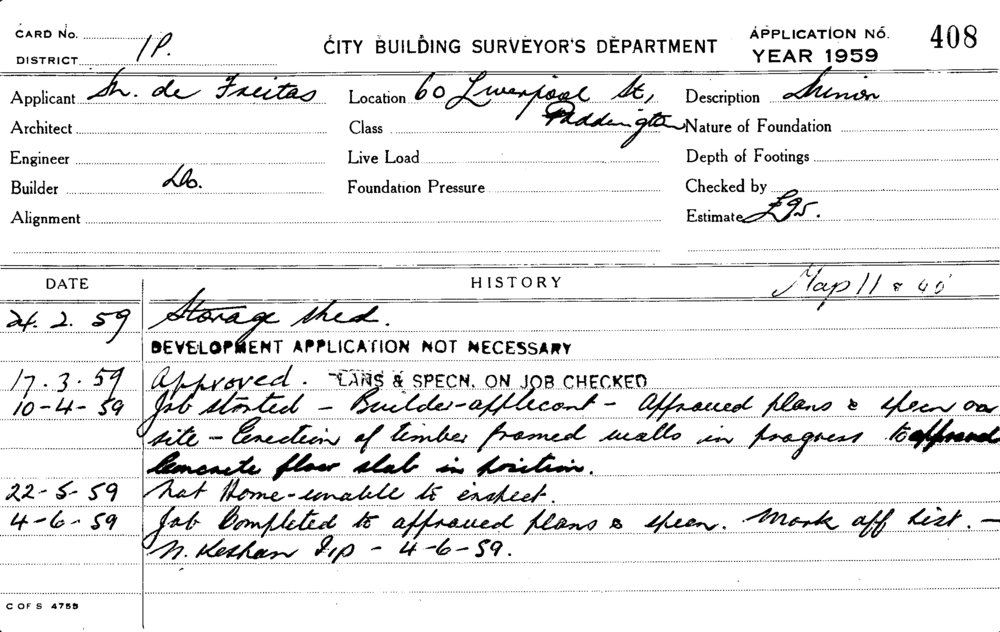 CARD No.
DISTRICT 1P.
CITY BUILDING SURVEYOR'S DEPARTMENT
APPLICATION No. 408
YEAR 1959
Applicant de Freitas Location 60 Liverpool St, Description Minor
Architect Class Paddington Nature of Foundation
Engineer Live Load Depth of Footings
Builder Do. Foundation Pressure Checked by
Alignment Estimate £95.
DATE HISTORY Map 11
24.2.59 Storage shed.
DEVELOPMENT APPLICATION NOT NECESSARY
17.3.59 Approved. PLANS & SPECN. ON JOB CHECKED
10-4-59 Job started - Builder-applicant - Approved plans & specn on
site - Erection of timber framed walls in progress to approved
Concrete floor slab in position.
22-5-59 Not Home - unable to inspect.
4-6-59 Job Completed to approved plans & specn. Mark off list. -
4-6-59.
C OF S 4755